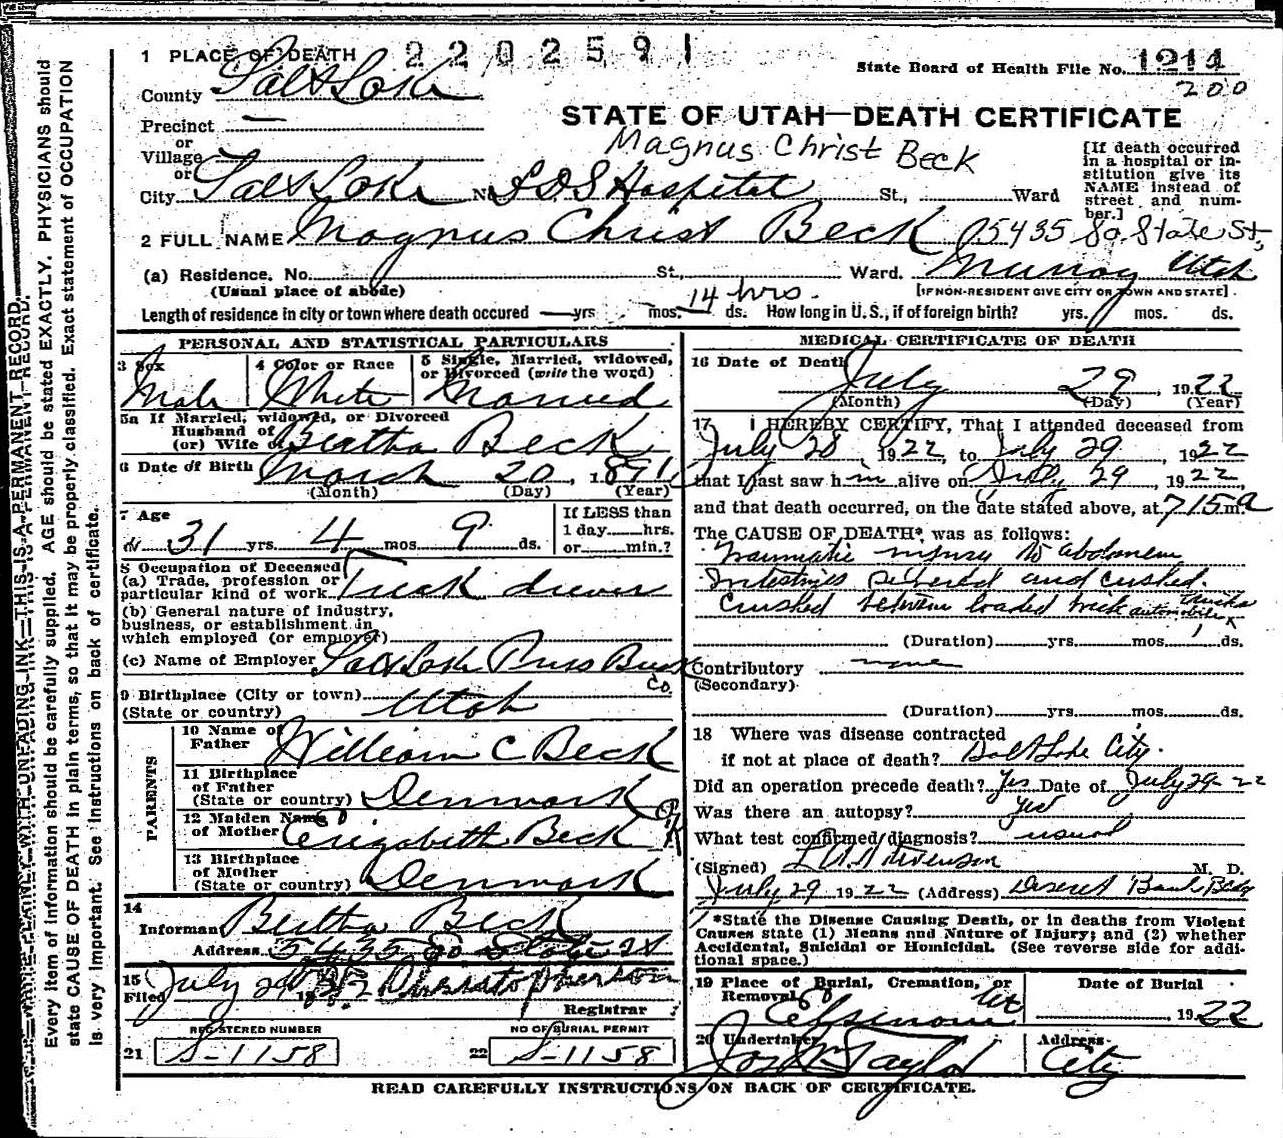 1 PLACE OF DEATH 2 2 0 2 5 9 1
State Board of Health File No. 1214
200
County Salt Lake
STATE OF UTAH—DEATH CERTIFICATE
Precinct —
or
Village
or
Magnus Christ Beck
[If death occurred in a hospital or institution give its NAME instead of street and number.]
City Salt Lake No L D S Hospital St., Ward
2 FULL NAME Magnus Christ Beck 5435 So. State St,
(a) Residence. No. St., Ward. Murray Utah
(Usual place of abode) [IF NON-RESIDENT GIVE CITY OR TOWN AND STATE]
Length of residence in city or town where death occured — yrs mos. 14 hrs. ds. How long in U. S., if of foreign birth? yrs. mos. ds.
PERSONAL AND STATISTICAL PARTICULARS
3 Sex Male
4 Color or Race White
5 Single, Married, widowed, or Divorced (write the word) Married
5a If Married, widowed, or Divorced
Husband of
(or) Wife of Bertha Beck
6 Date of Birth March 20, 1891
(Month) (Day) (Year)
7 Age
31 yrs. 4 mos 9 ds.
If LESS than
1 day hrs.
or min.?
8 Occupation of Deceased
(a) Trade, profession or
particular kind of work Truck driver
(b) General nature of industry,
business, or establishment in
which employed (or employer)
(c) Name of Employer Salt Lake Press Brick Co.
9 Birthplace (City or town)
(State or country) Utah
PARENTS
10 Name of
Father William C Beck
11 Birthplace
of Father
(State or country) Denmark
12 Maiden Name
of Mother Elizabeth Beck OK
13 Birthplace
of Mother
(State or country) Denmark
14
Informant Bertha Beck
Address 5435 So State St
15
Filed July 29 1922 Christopherson
Registrar
REGISTERED NUMBER NO OF BURIAL PERMIT
21 S-1158 22 S-1158
MEDICAL CERTIFICATE OF DEATH
16 Date of Death July 29, 1922
(Month) (Day) (Year)
17 I HEREBY CERTIFY, That I attended deceased from
July 28, 1922, to July 29, 1922
that I last saw him alive on July 29, 1922,
and that death occurred, on the date stated above, at 715 m. a
The CAUSE OF DEATH* was as follows:
Traumatic injury to abdomen
Intestines severed and crushed.
Crushed between loaded brick automobile trucks
(Duration) yrs. mos. 1 ds.
Contributory none
(Secondary)
(Duration) yrs. mos. ds.
18 Where was disease contracted
if not at place of death? Salt Lake City.
Did an operation precede death? Yes Date of July 29-22
Was there an autopsy? Yes
What test confirmed diagnosis? usual
(Signed) Stevenson M. D.
July 29 1922 (Address) Deseret Bank Bldg
*State the Disease Causing Death, or in deaths from Violent
Causes state (1) Means and Nature of Injury; and (2) whether
Accidental, Suicidal or Homicidal. (See reverse side for additional space.)
19 Place of Burial, Cremation, or
Removal Elsinore Ut
Date of Burial
1922
20 Undertaker Jos Wm Taylor
Address City
READ CAREFULLY INSTRUCTIONS ON BACK OF CERTIFICATE.
WRITE PLAINLY WITH UNFADING INK—THIS IS A PERMANENT RECORD.
Every item of information should be carefully supplied. AGE should be stated EXACTLY. PHYSICIANS should
state CAUSE OF DEATH in plain terms, so that it may be properly classified. Exact statement of OCCUPATION
is very important. See instructions on back of certificate.